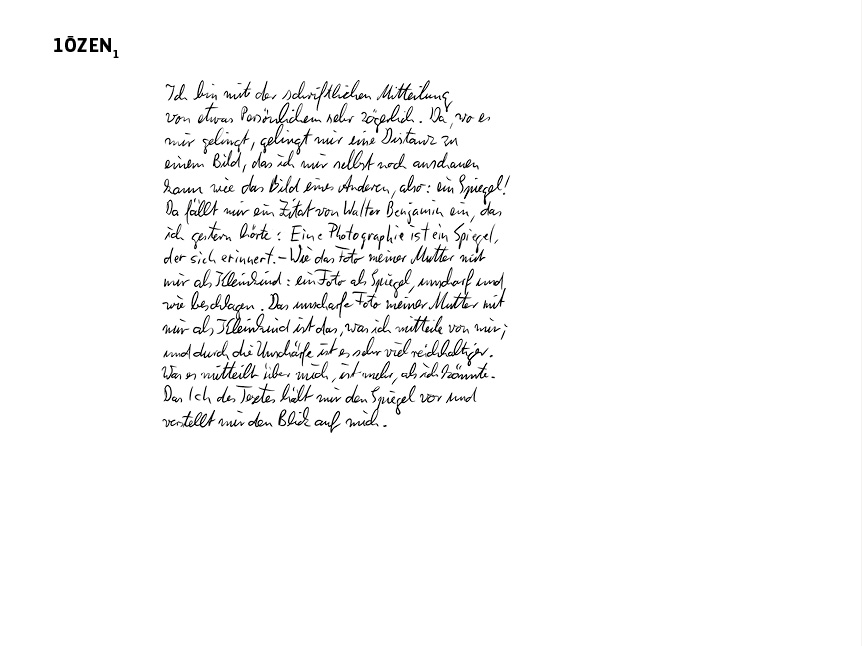 1ŌZEN1
Ich bin mit der schriftlichen Mitteilung
von etwas Persönlichem sehr zögerlich. Da, wo es
mir gelingt, gelingt mir eine Distanz zu
einem Bild, das ich mir selbst noch anschauen
kann wie das Bild eines Anderen, also: ein Spiegel!
Da fällt mir ein Zitat von Walter Benjamin ein, das
ich gestern hörte: Eine Photographie ist ein Spiegel,
der sich erinnert. – Wie das Foto meiner Mutter mit
mir als Kleinkind: ein Foto als Spiegel, unscharf und,
wie beschlagen. Das unscharfe Foto meiner Mutter mit
mir als Kleinkind ist das, was ich mitteile von mir;
und durch die Unschärfe ist es sehr viel reichhaltiger.
Was es mitteilt über mich, ist mehr, als ich könnte.
Das Ich des Textes hält mir den Spiegel vor und
verstellt mir den Blick auf mich.